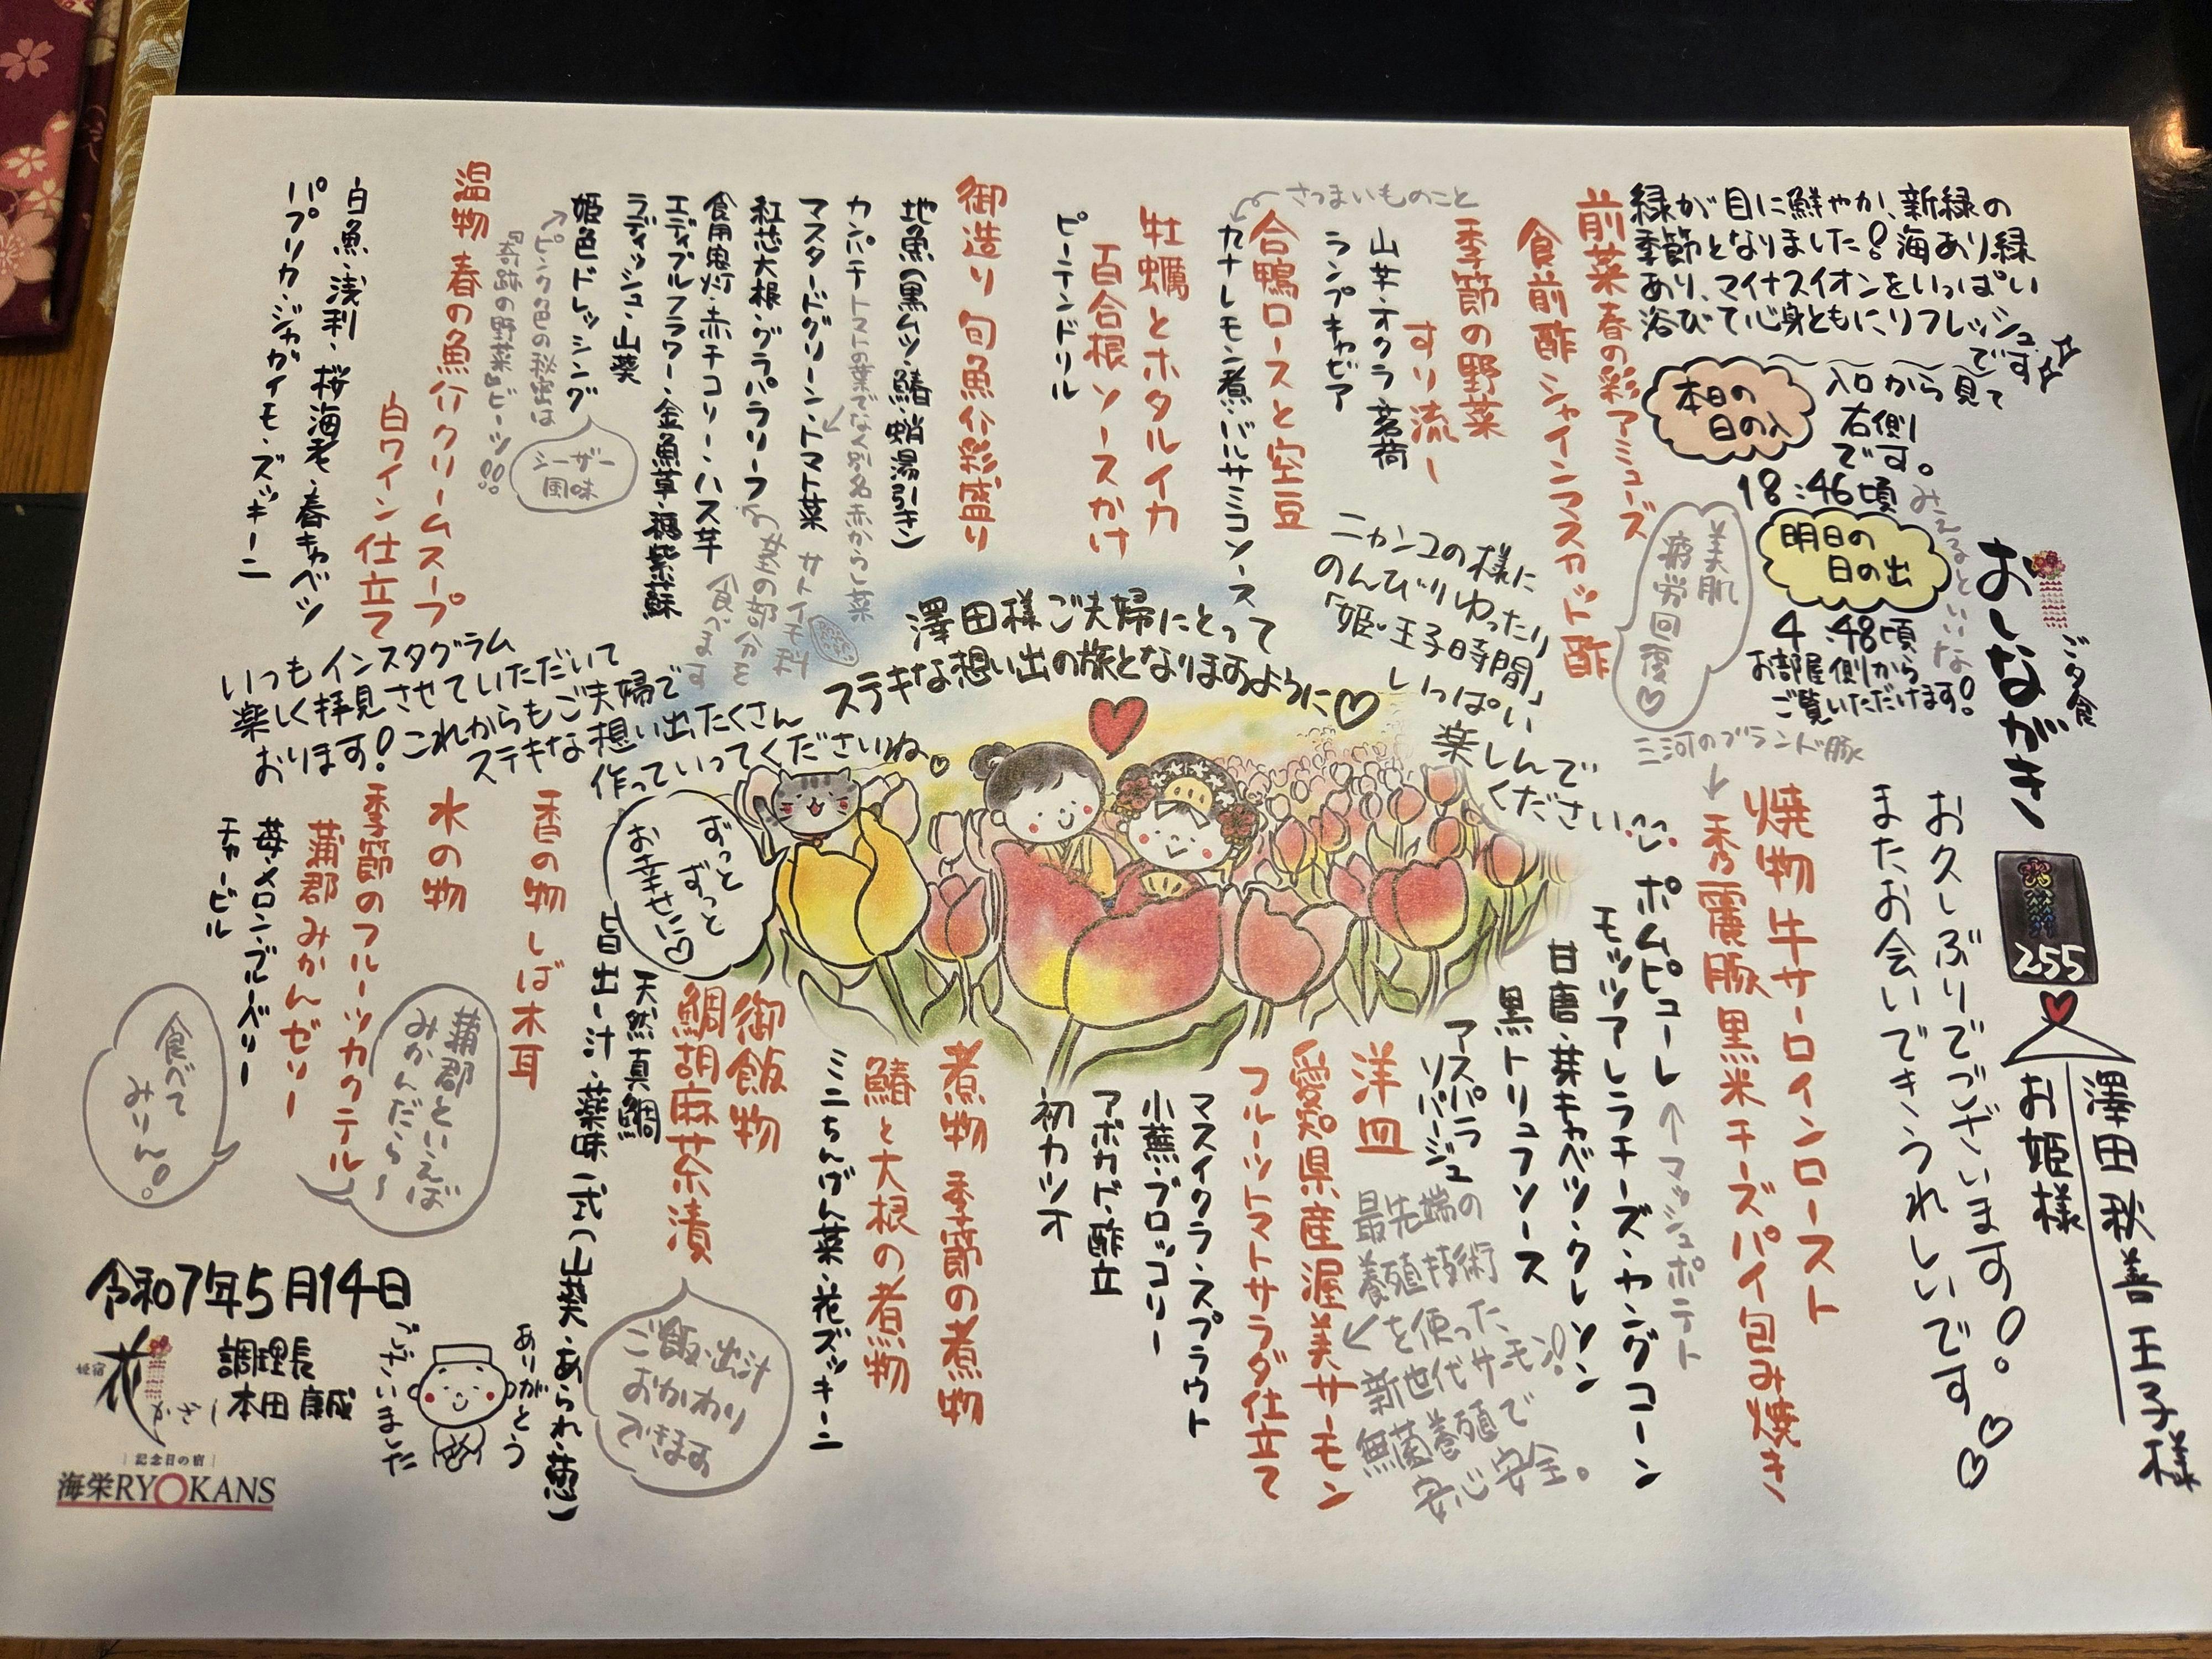 おしながき
ご夕食
255
澤田秋善王子様
お姫様
お久しぶりでございます!!
またお会いできうれしいです♡♡
緑が目に鮮やか、新緑の
季節となりました!海あり緑
あり、マイナスイオンをいっぱい
浴びて心身ともにリフレッシュ
です
本日の
日の入
入口から見て
右側
です。
18:46頃
みえるといいな
明日の
日の出
4:48頃
お部屋側から
ご覧いただけます!
前菜 春の彩アミューズ
食前酢 シャインマスカット酢
美肌
疲労回復♡
季節の野菜
すり流し
山芋・オクラ・茗荷
ランプキャビア
合鴨ロースと空豆
さつまいものこと
カナレモン煮・バルサミコソース
牡蠣とホタルイカ
百合根ソースかけ
ピーテンドリル
御造り 旬魚介彩盛り
地魚(黒ムツ・鰆・蛸湯引き)
カンパチ
トマトの葉でなく別名赤からし菜
マスタードグリーン・トマト菜
紅芯大根・グラパラリーフ
食用鬼灯・赤チコリー・ハス芋
サトイモ科
の茎の部分を
食べます
エディブルフラワー・金魚草・穂紫蘇
ラディッシュ・山葵
姫色ドレッシング
シーザー
風味
ピンク色の秘密は
『奇跡の野菜』ビーツ!!
温物 春の魚介クリームスープ
白ワイン仕立て
白魚・浅利・桜海老・春キャベツ
パプリカ・ジャガイモ・ズッキーニ
ニャンコの様に
のんびりゆったり
「姫・王子時間」
いっぱい
楽しんで
ください
澤田様ご夫婦にとって
ステキな想い出の旅となりますように♡
いつもインスタグラム
楽しく拝見させていただいて
おります!これからもご夫婦で
ステキな想い出たくさん
作っていってくださいね♡
ずっと
ずっと
お幸せに♡
三河のブランド豚
焼物 牛サーロインロースト
秀麗豚 黒米チーズパイ包み焼き
ポムピューレ ←マッシュポテト
モッツアレラチーズ・ヤングコーン
甘唐・芽キャベツ・クレソン
黒トリュフソース
アスパラ
ソバージュ
洋皿
愛知県産渥美サーモン
フルーツトマトサラダ仕立て
最先端の
養殖技術
を使った
新世代サーモン!
無菌養殖で
安心安全。
マスイクラ・スプラウト
小蕪・ブロッコリー
アボカド・酢立
初カツオ
煮物 季節の煮物
鰆と大根の煮物
ミニちんげん菜・花ズッキーニ
御飯物
鯛胡麻茶漬
天然真鯛
旨出し汁・薬味一式(山葵・あられ・葱)
ご飯・出汁
おかわり
できます
香の物 しば木耳
水の物
季節のフルーツカクテル
蒲郡みかんゼリー
苺・メロン・ブルーベリー
チャービル
蒲郡といえば
みかんだら~
食べて
みりん。
令和7年5月14日
姫宿
花
かざし
調理長
本田康成
ありがとう
ございました
記念日の宿
海栄RYOKANS